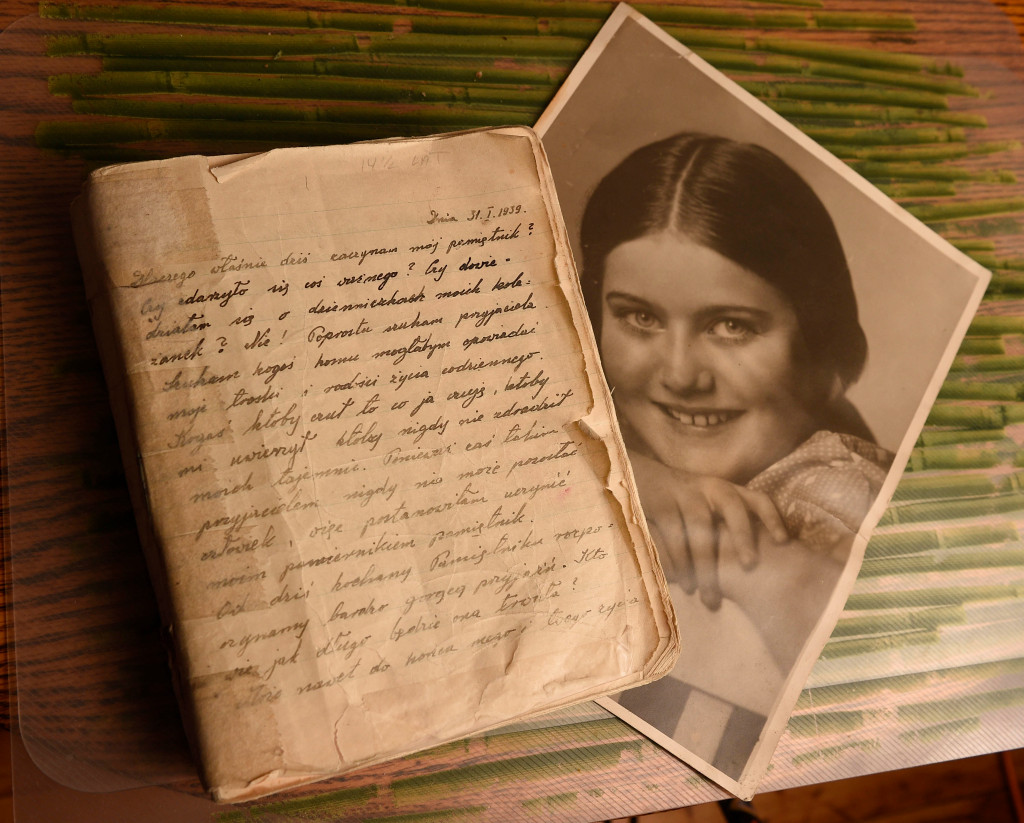 14½ LAT
Dnia 31.I.1939.
Dlaczego właśnie dziś zaczynam mój pamiętnik?
Czy zdarzyło się coś ważnego? Czy dowie-
działam się o dzienniczkach moich kole-
żanek? Nie! Poprostu szukam przyjaciela
Szukam kogoś komu mogłabym opowiadać
moje troski i radości życia codziennego.
Kogoś któby czuł to co ja czuję, któby
mi uwierzył któby nigdy nie zdradził
moich tajemnic. Ponieważ zaś takim
przyjacielem nigdy nie może pozostać
człowiek, więc postanowiłam uczynić
moim powiernikiem Pamiętnik.
Od dziś kochany Pamiętniku rozpo-
czynamy bardzo gorącą przyjaźń. Kto
wie jak długo będzie ona trwała?
Może nawet do końca mego i Twego życia